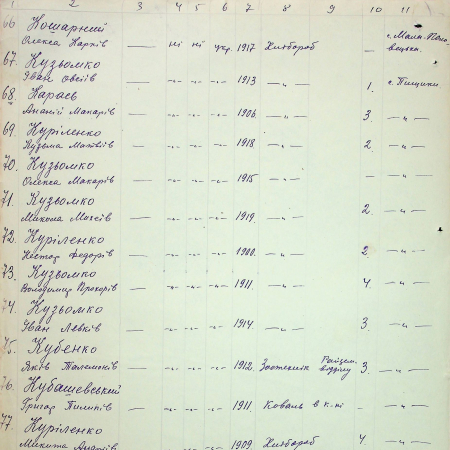 1 2 3 4 5 6 7 8 9 10 11
66 Кошарний
Олекса Марків — ні ні укр. 1917 Хлібороб — с. Мала-
67. Кузьомко
Іван Овсіїв — -„- -„- -„- 1913 — „ — 1. с. Пищики
68. Караєв
Ананій Макарів — -„- -„- -„- 1906 — „ — 3. — „ —
69. Куріленко
Кузьма Матвіїв — -„- -„- -„- 1918 — „ — 2 — „ —
70. Кузьомко
Олекса Макарів — -„- -„- -„- 1915 — „ — — — „ —
71. Кузьомко
Микола Мосеїв — -„- -„- -„- 1919. — „ — 2. — „ —
72. Куріленко
Нестор Федорів — -„- -„- -„- 1900. — „ — 2. — „ —
73. Кузьомко
Володимир Прокорів — -„- -„- -„- 1911. — „ — 4. — „ —
74. Кузьомко
Іван Левків — -„- -„- -„- 1914. — „ — 3. — „ —
75. Кубенко
Яків — -„- -„- -„- 1912. Зоотехнік Райзем. відділу 3. — „ —
76. Кубашевський
Григор Пилипів — -„- -„- -„- 1911. Коваль в к-пі - — „ —
77. Куріленко
Микита — -„- -„- -„- 1909. Хлібороб 4. — „ —